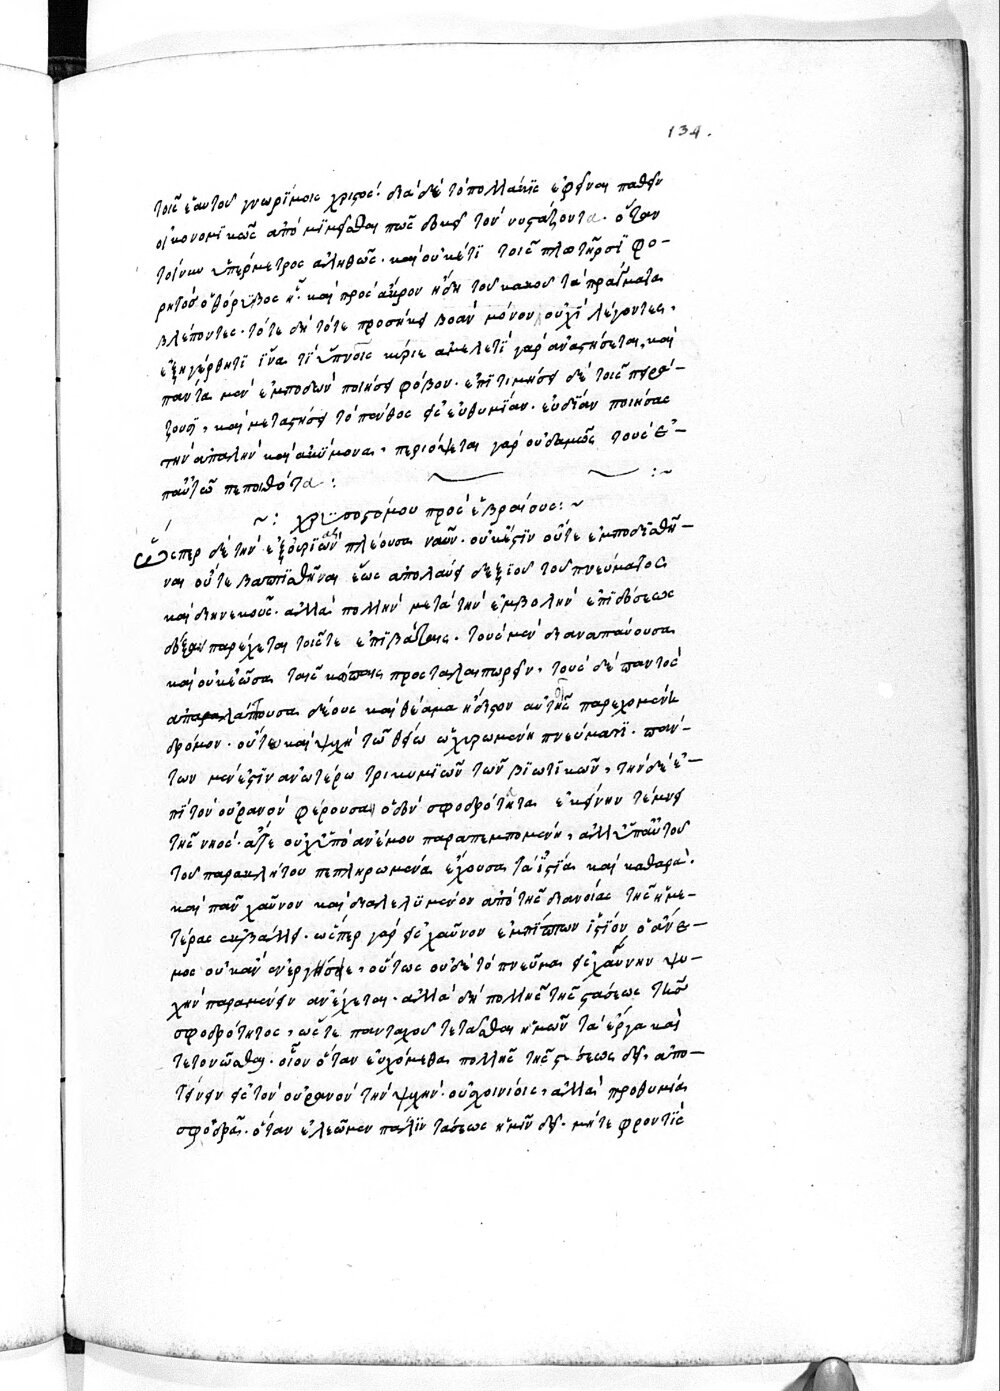 134.
τοῖς ἑαυτοῦ γνωρίμοις χριστός· διὰ δὲ τὸ πολλάκις ἐφεῖναι παθεῖν
οἰκονομικῶς ἀπομιμεῖσθαι πως δοκεῖ τὸν νυστάζοντα. ὅταν
τοίνυν ὑπέρμετρος ἀληθῶς. καὶ οὐκέτι τοῖς πλωτῆρσι φο-
ρητὸς ὁ θόρυβος ᾖ. καὶ πρὸς ἄκρον ἤδη τοῦ κακοῦ τὰ πράγματα
βλέποντες. τότε δὴ τότε προσήκει βοᾶν μονονουχὶ λέγοντες.
ἐξηγέρθητι ἵνα τί ὑπνοῖς κύριε ἀμελητὶ γὰρ ἀναστήσεται, καὶ
πάντα μὲν ἐμποδὼν ποιήσει φόβον. ἐπιτιμήσει δὲ τοῖς πειρά-
ζουσι, καὶ μεταστήσει τὸ πένθος εἰς εὐθυμίαν. εὐδίαν ποιήσας
τὴν ἁπαλὴν καὶ ἀκύμονα. περιόψεται γὰρ οὐδαμῶς τοὺς ἐ-
π αὐτῶ πεποιθότα :
~ : χρυσοστόμου πρὸς ἑβραίους : ~
Ὥσπερ δὲ τὴν ἐξ οὐρίων πλέουσαν ναῦν. οὐκ ἔστιν οὔτε ἐμποδισθῆ-
ναι οὔτε βαπτισθῆναι ἕως ἀπολαύει δεξιοῦ τοῦ πνεύματος
καὶ διηνεκοῦς. ἀλλὰ πολλὴν μετὰ τὴν ἐμβολὴν ἐπιδόσεως
δόξαν παρέχεται τοῖς τε ἐπιβάταις. τοὺς μὲν διαναπαύουσα
καὶ οὐκ ἐῶσα ταῖς κώπαις προσταλαιπωρεῖν, τοὺς δὲ παντὸς
ἀπαλλάττουσα δέους καὶ θέαμα ἥδιστον αὐτῆς παρεχομένη
δρόμον. οὕτω καὶ ψυχὴ τῶ θείω ὠχυρωμένη πνεύματι. πάν-
των μὲν ἐστὶν ἀνωτέρω τρικυμιῶν τῶν βιωτικῶν, τὴν δὲ ἐ-
πὶ τὸν οὐρανὸν φέρουσαν ὁδὸν σφοδρότητα ἐκείνην τέμνει
τῆς νηός. ἅτε οὐχ ὑπὸ ἀνέμου παραπεμπομένη, ἀλλ ὑπ αὐτοῦ
τοῦ παρακλήτου πεπληρωμένα ἔχουσα τὰ ἱστία καὶ καθαρὰ.
καὶ πᾶν χαῦνον καὶ διαλελυμένον ἀπὸ τῆς διανοίας τῆς ἡμε-
τέρας ἐκβάλλει. ὥσπερ γὰρ εἰς χαῦνον ἐμπίπτων ἱστίον ὁ ἄνε-
μος οὐκ ἂν ἐνεργήσειε, οὕτως οὐδὲ τὸ πνεῦμα εἰς χαύνην ψυ-
χὴν παραμένειν ἀνέχεται. ἀλλὰ δεῖ πολλῆς τῆς τάσεως τῆς
σφοδρότητος, ὥστε πανταχοῦ τετάσθαι ἡμῶν τὰ ἔργα καὶ
τετονῶσθαι. οἷον ὅταν εὐχώμεθα πολλῆς τῆς τάσεως δεῖ, ἀπο-
τείνειν εἰς τὸν οὐρανὸν τὴν ψυχὴν. οὐ σχοινίοις, ἀλλὰ προθυμία
σφοδρᾶ. ὅταν ἐλεῶμεν πάλιν τάσεως ἡμῖν δεῖ. μήτε φροντὶς